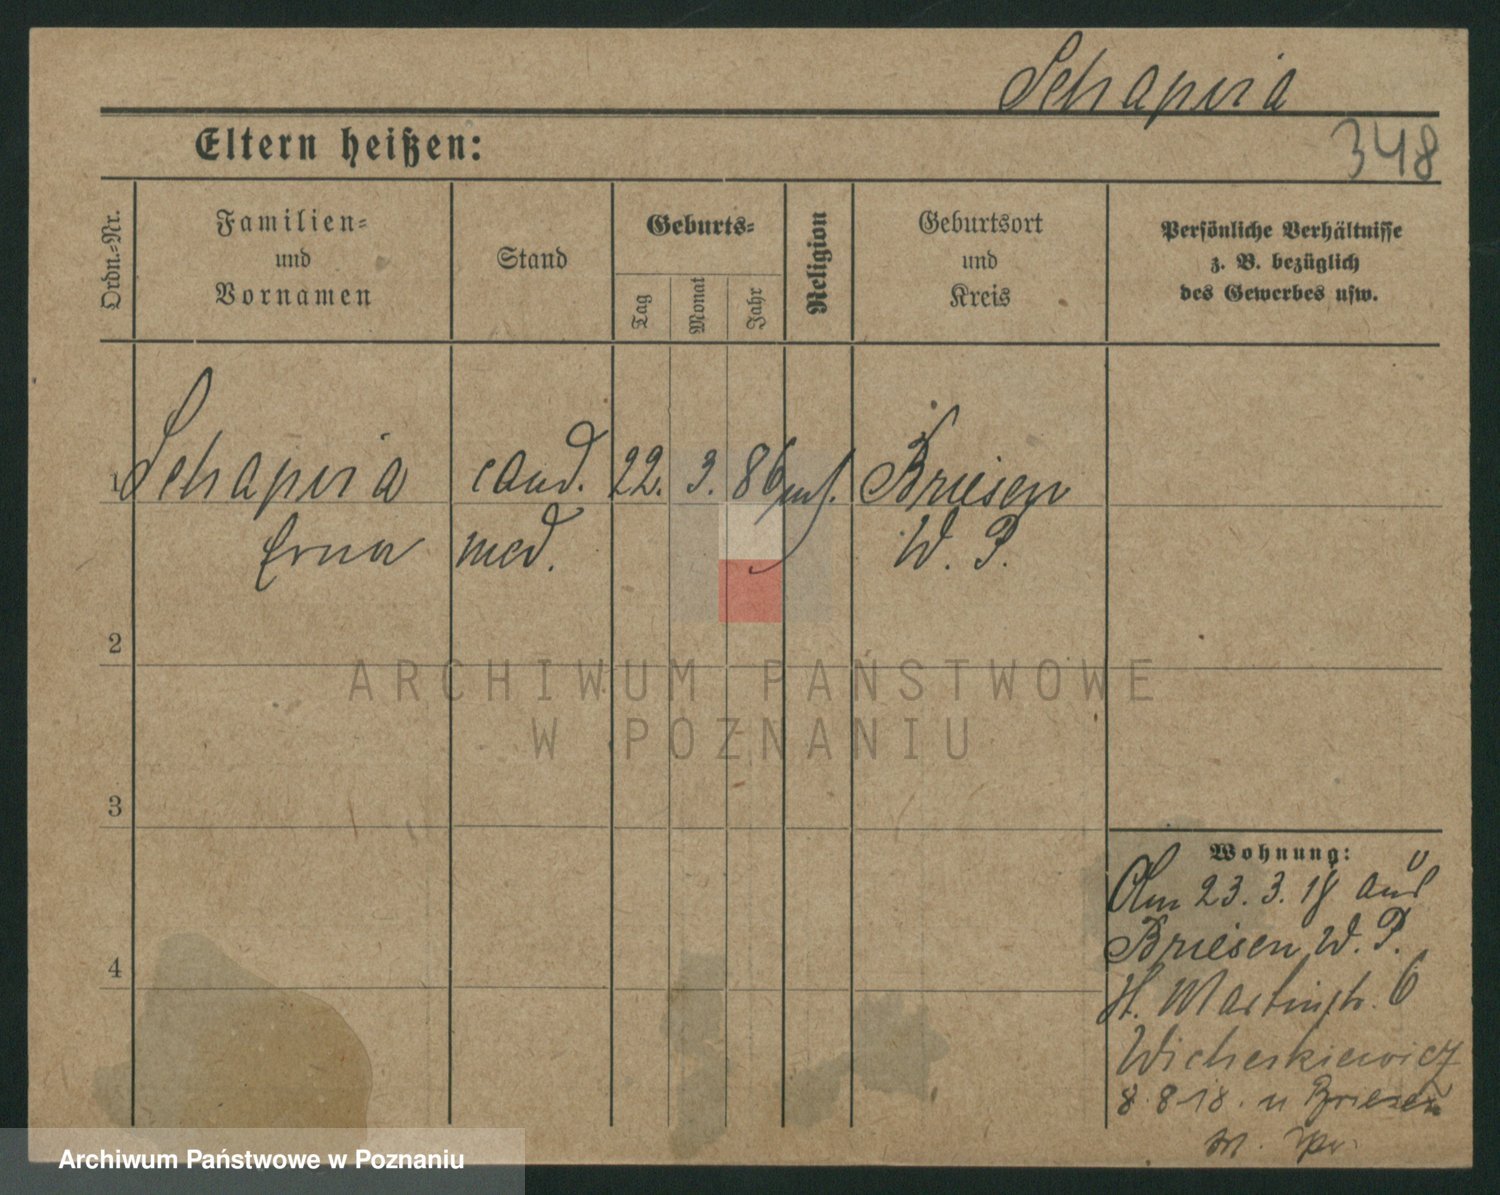 Schapira
348
Eltern heißen:
Ordn.-Nr.
Familien-
und
Vornamen
Stand
Geburts-
Tag
Monat
Jahr
Religion
Geburtsort
und
Kreis
Persönliche Verhältnisse
z. B. bezüglich
des Gewerbes usw.
1 Schapira cand. 22. 3. 86 Briesen
Erna med. W. P.
2
3
4
Wohnung:
Am 23. 3. 18 aus
Briesen W. P.
St. Martinstr. 6
Wicherkiewicz
8 8 18. n Briesen
W. Pr.
ARCHIWUM PAŃSTWOWE
W POZNANIU
Archiwum Państwowe w Poznaniu